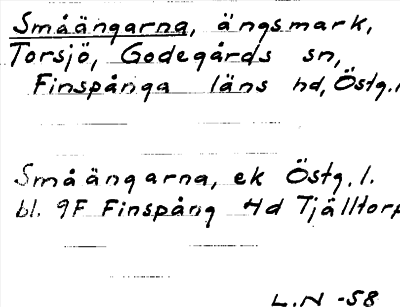 Småängarna, ängsmark,
Torsjö, Godegårds sn,
Finspånga läns hd, Östg.
Småängarna, ek Östg. l.
bl. 9F Finspång Hd Tjälltorp
L.N -58